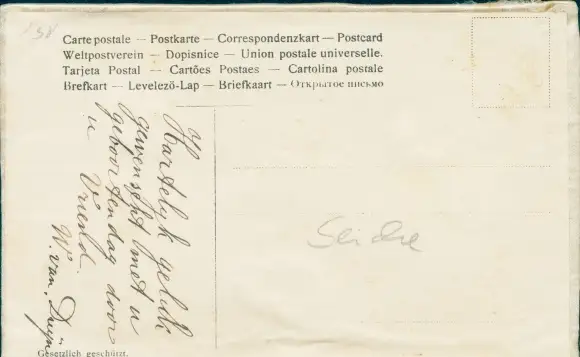 Carte postale — Postkarte — Correspondenzkart — Postcard
Weltpostverein — Dopisnice — Union postale universelle.
Tarjeta Postal — Cartões Postaes — Cartolina postale
Brefkart — Levelezö-Lap — Briefkaart — Открытое письмо
Hartelyk geluk
gewenscht met u
geboortendag door
u Vriend
W. van Duyn
Gesetzlich geschützt.